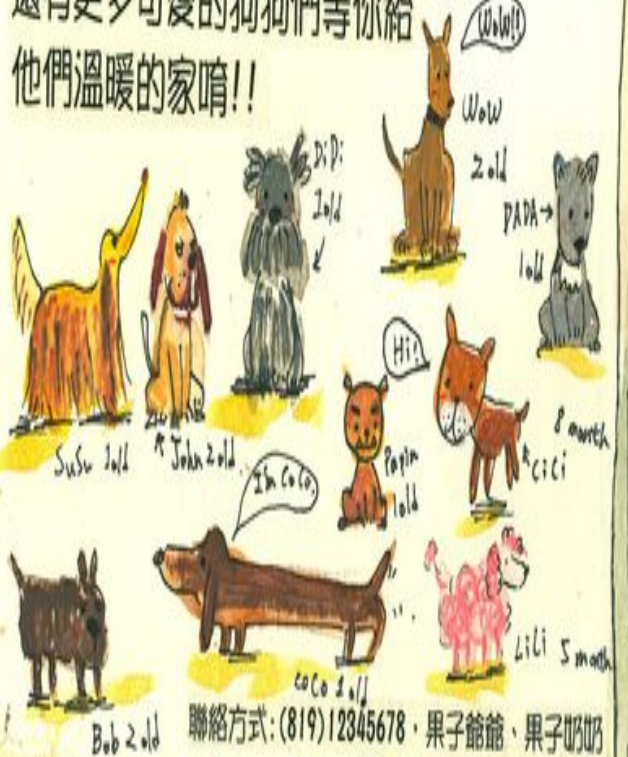 還有更多可愛的狗狗們等你給
他們溫暖的家唷!!
Wow!!
Wow
2 old
DiDi
1 old
DADA→
1 old
Hi!
SuSu 1 old
John 2 old
Papin
1 old
8 month
CiCi
I'm CoCo
LiLi 5 month
CoCo 1 old
Bob 2 old
聯絡方式:(819)12345678·果子爺爺、果子奶奶